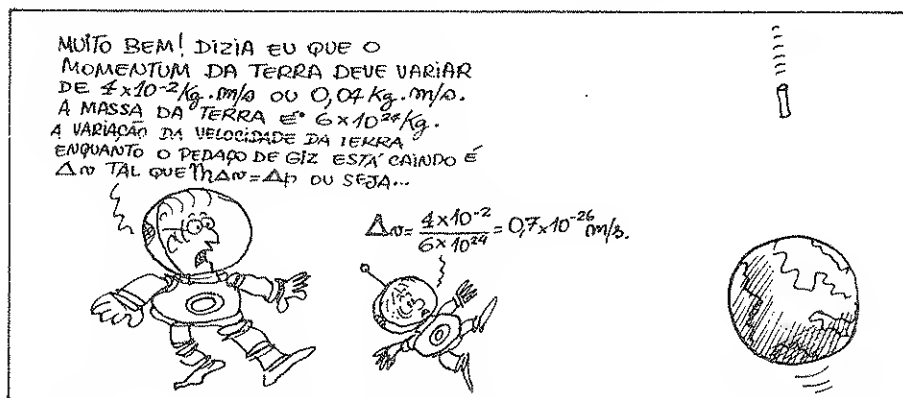 MUITO BEM! DIZIA EU QUE O
MOMENTUM DA TERRA DEVE VARIAR
DE 4x10⁻²/Kg.m/s OU 0,04 Kg.m/s.
A MASSA DA TERRA É 6x10²⁴/Kg.
A VARIAÇÃO DA VELOCIDADE DA TERRA
ENQUANTO O PEDAÇO DE GIZ ESTÁ CAINDO É
Δv TAL QUE mΔv=Δp OU SEJA...
Δv= 4x10⁻² / 6x10²⁴ = 0,7x10⁻²⁶ m/s.